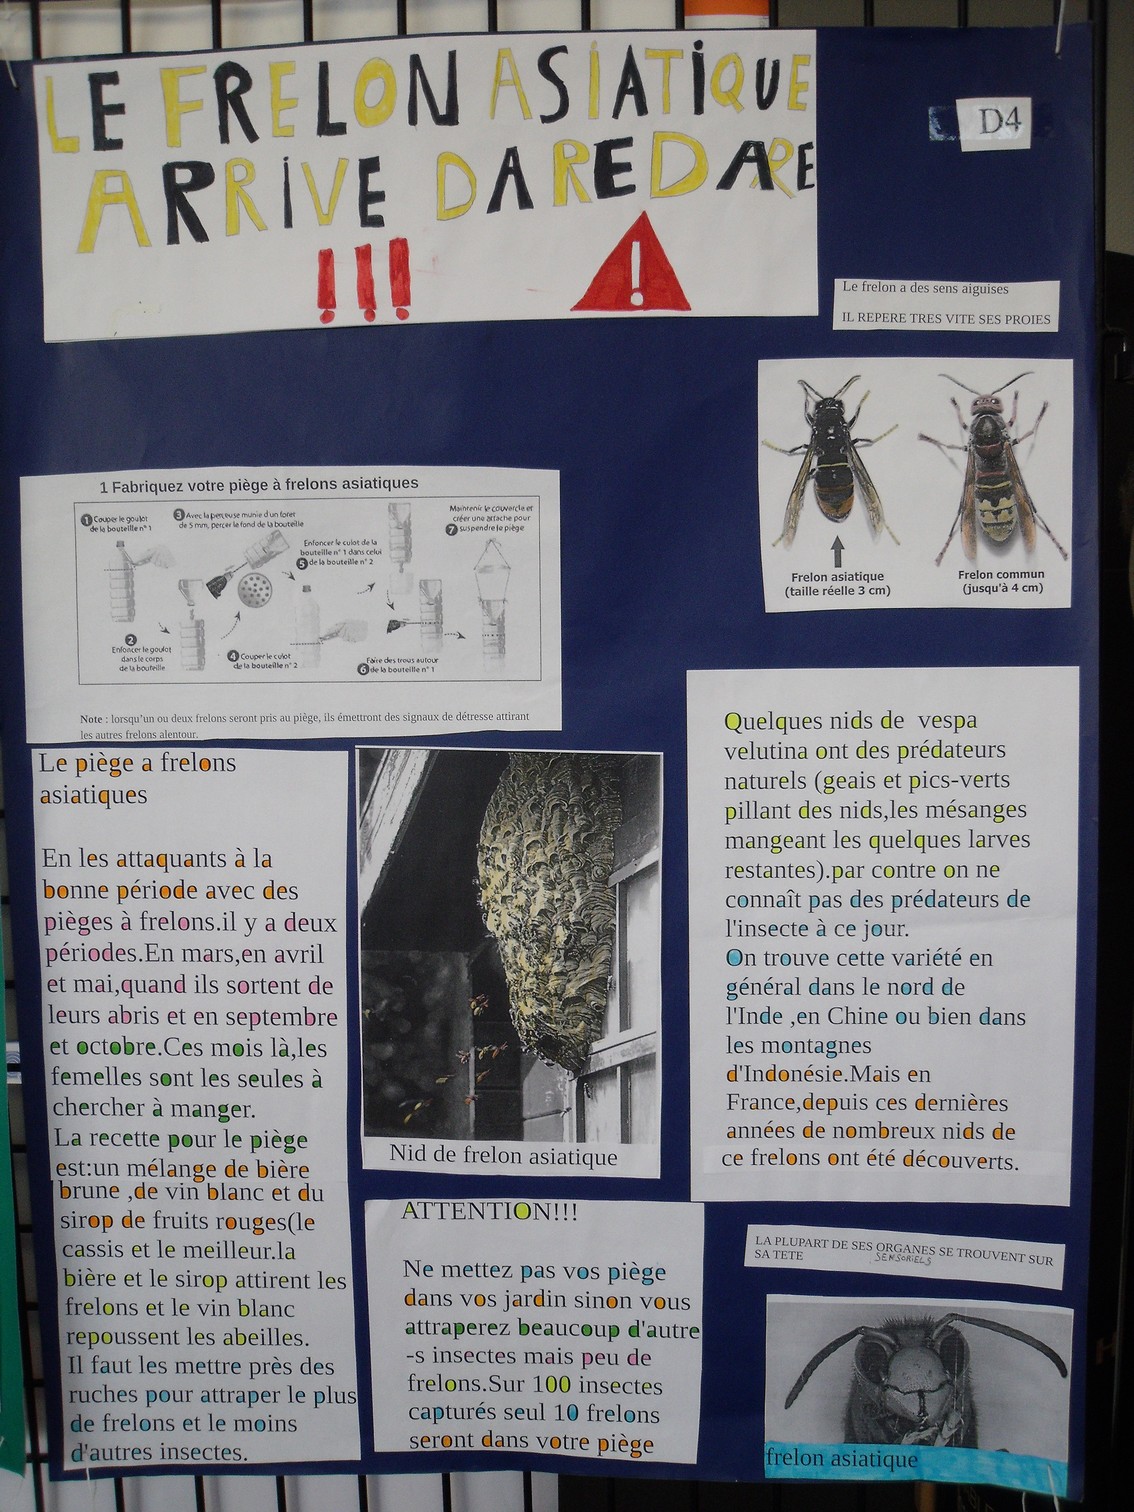 LE FRELON ASIATIQUE
ARRIVE DAREDARE
!!!
!
D4
Le frelon a des sens aiguises
IL REPERE TRES VITE SES PROIES
Frelon asiatique
(taille réelle 3 cm)
Frelon commun
(jusqu'à 4 cm)
1 Fabriquez votre piège à frelons asiatiques
1 Couper le goulot
de la bouteille n° 1
2
Enfoncer le goulot
dans le corps
de la bouteille
3 Avec la perceuse munie d'un foret
de 5 mm, percer le fond de la bouteille
4 Couper le culot
de la bouteille n° 2
Enfoncer le culot de la
bouteille n° 1 dans celui
5 de la bouteille n° 2
Faire des trous autour
6 de la bouteille n° 1
Maintenir le couvercle et
créer une attache pour
7 suspendre le piège
Note : lorsqu'un ou deux frelons seront pris au piège, ils émettront des signaux de détresse attirant
les autres frelons alentour.
Le piège a frelons
asiatiques
En les attaquants à la
bonne période avec des
pièges à frelons.il y a deux
périodes.En mars,en avril
et mai,quand ils sortent de
leurs abris et en septembre
et octobre.Ces mois là,les
femelles sont les seules à
chercher à manger.
La recette pour le piège
est:un mélange de bière
brune ,de vin blanc et du
sirop de fruits rouges(le
cassis et le meilleur.la
bière et le sirop attirent les
frelons et le vin blanc
repoussent les abeilles.
Il faut les mettre près des
ruches pour attraper le plus
de frelons et le moins
d'autres insectes.
Nid de frelon asiatique
ATTENTION!!!
Ne mettez pas vos piège
dans vos jardin sinon vous
attraperez beaucoup d'autre
-s insectes mais peu de
frelons.Sur 100 insectes
capturés seul 10 frelons
seront dans votre piège
Quelques nids de vespa
velutina ont des prédateurs
naturels (geais et pics-verts
pillant des nids,les mésanges
mangeant les quelques larves
restantes).par contre on ne
connaît pas des prédateurs de
l'insecte à ce jour.
On trouve cette variété en
général dans le nord de
l'Inde ,en Chine ou bien dans
les montagnes
d'Indonésie.Mais en
France,depuis ces dernières
années de nombreux nids de
ce frelons ont été découverts.
LA PLUPART DE SES ORGANES SE TROUVENT SUR
SA TETE SENSORIELS
frelon asiatique